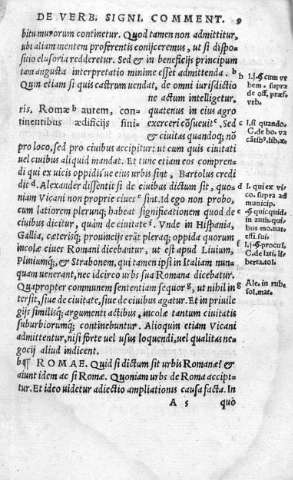 DE VERB. SIGNI. COMMENT. 9
bitu murorum continetur. Quod tamen non admittitur,
ubi aliam mentem proferentis conijceremus, ut si dispo
sitio elusoria redderetur. Sed & in beneficijs principum
tam angusta interpretatio minime esset admittenda. b
Quin etiam si quis castrum uendat, de omni iurisdictio
ne actum intelligetur,
ris. Romæ b autem, con-
quatenus in eius agro
tinentibus ædificijs fini-
exerceri cōsueuit. Sed
& ciuitas quandoq; nō
pro loco, sed pro ciuibus accipitur: ut cum quis ciuitati
uel ciuibus aliquid mandat. Et tunc etiam eos comprehen
di qui ex uicis oppidisue eius urbis sunt, Bartolus credi
dit. Alexander dissentit si de ciuibus dictum sit, quo-
niam Vicani non proprie ciues sint. Id ego non probo,
cum latiorem plerunq; habeat significationem quod de
ciuibus dicitur, quàm de ciuitate. Vnde in Hispania,
Gallia, cæterisq; prouincijs erāt pleraq; oppida quorum
incolæ ciues Romani dicebantur, ut est apud Liuium,
Pliniumq;, & Strabonem, qui tamen ipsi in Italiam nun
quam uenerant, nec idcirco urbs sua Romana dicebatur.
Quapropter communem sententiam sequor, ut nihil in
tersit, siue de ciuitate, siue de ciuibus agatur. Et in priuile
gijs similibq; argumenti actibus, incolæ tantum ciuitatis
suburbiorumq; continebuntur. Alioquin etiam Vicani
admittentur, nisi forte uel usus loquendi, uel qualitas ne
gocij aliud indicent.
b¶ ROMAE. Quid si dictum sit urbis Romanæ? &
aiunt idem ac si Romæ. Quoniam urbs de Roma accipi-
tur. Et ideo uidetur adiectio ampliationis causa facta. In
A 5 quò
b l. j. § cum ur
bem. supra
de off. præf.
vrb.
c l. si quando.
C. de bo. va
d l. qui ex vi
co. supra ad
municip.
e § quicquid.
f l. j. § procul.
C. de lati. li-
berta. tol.
g Ale. in rub.
sol. mat.